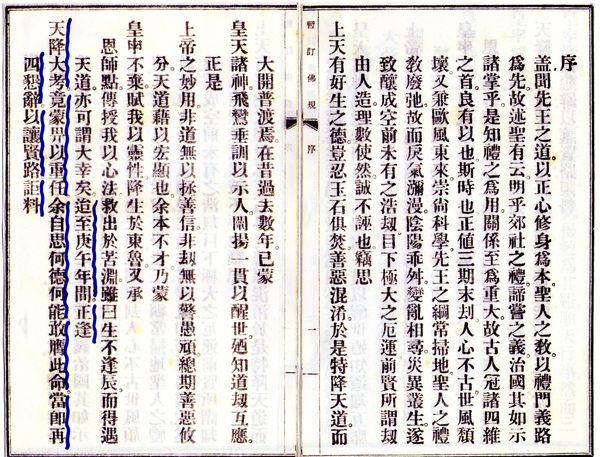 序
蓋聞先王之道。以正心修身爲本。聖人之教。以禮門義路
爲先。故述聖有云。明乎郊社之禮。禘嘗之義。治國其如示
諸掌乎。是知禮之爲用。關係至爲重大。故古人冠諸四維
之首。良有以也。斯時也。正値三期末刦。人心不古。世風頹
壞。又兼歐風東來。崇尚科學。先王之綱常掃地。聖人之禮
教廢弛。故而戾氣瀰漫。陰陽乖舛。變亂相尋。災異叢生。遂
致釀成空前未有之浩刦。目下極大之厄運。前賢所謂刦
由人造。理數使然。誠不誣也。竊思
上天有好生之德。豈忍玉石俱焚。善惡混淆。於是特降天道。而
暫訂佛規 序 一
大開普渡焉。在昔過去數年。已蒙
皇天諸神。飛鸞垂訓以示人。闡揚一貫以醒世。廼知道刦互應。
正是
上帝之妙用。非道無以拯善信。非刦無以警愚頑。總期善惡攸
分。天道藉以宏顯也。余本不才。乃蒙
皇申不棄。賦我以靈性。降生於東魯。又承
恩師點傳。授我以心法。救出於苦淵。雖曰生不逢辰。而得遇
天道。亦可謂大幸矣。迨至庚午年間。正逢
天降大考。竟蒙畀以重任。余自思何德何能。敢膺此命。當卽再
四懇辭。以讓賢路。詎料